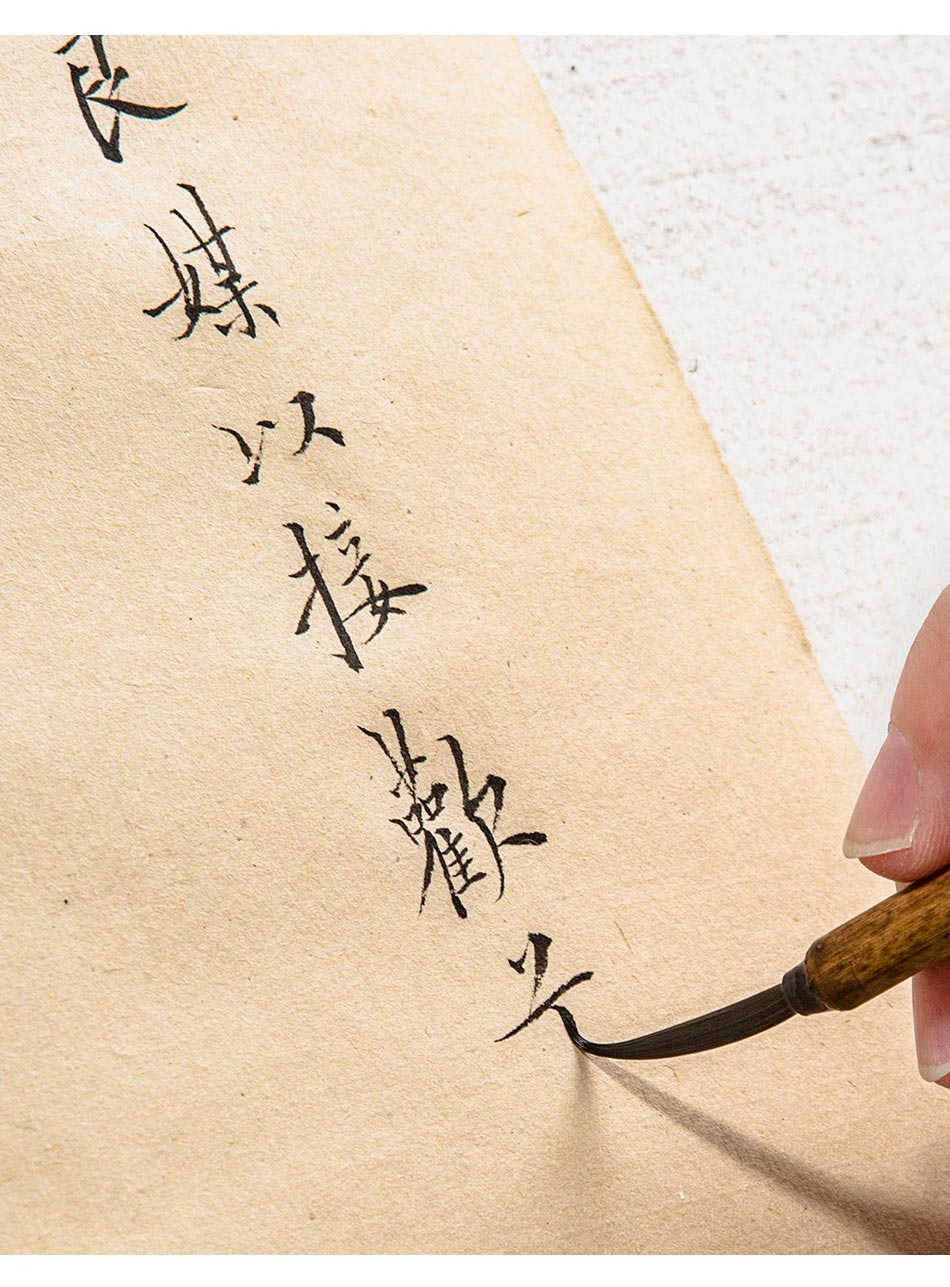 良媒以接歡兮